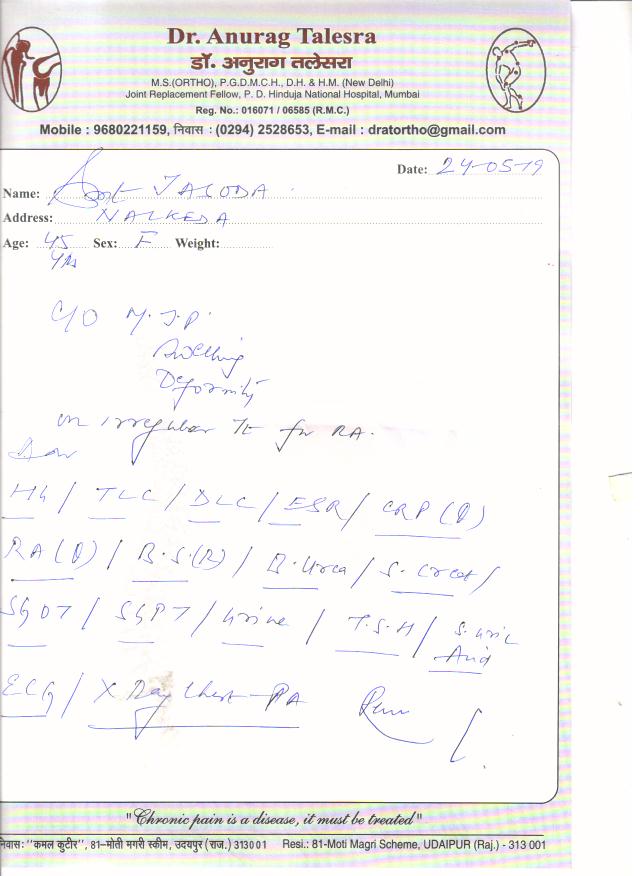 Dr. Anurag Talesra
डॉ. अनुराग तलेसरा
M.S.(ORTHO), P.G.D.M.C.H., D.H. & H.M. (New Delhi)
Joint Replacement Fellow, P. D. Hinduja National Hospital, Mumbai
Reg. No.: 016071 / 06585 (R.M.C.)
Mobile : 9680221159, निवास : (0294) 2528653, E-mail : dratortho@gmail.com
Date: 24-05-19
Name: Smt JASODA
Address: NALKEDA
Age: 45 Sex: F Weight:
Yrs
C/O M.J.P.
Swelling
Deformity
on irregular Tt for RA.
Adv
Hb / TLC / DLC / ESR / CRP (Q)
RA (Q) / B.S.(R) / B.Urea / S. Creat /
SGOT / SGPT / Urine / T.S.H / S. Uric
Acid
ECG / X Ray Chest - PA
"Chronic pain is a disease, it must be treated"
निवास: "कमल कुटीर", 81-मोती मगरी स्कीम, उदयपुर (राज.) 313001 Resi.: 81-Moti Magri Scheme, UDAIPUR (Raj.) - 313 001